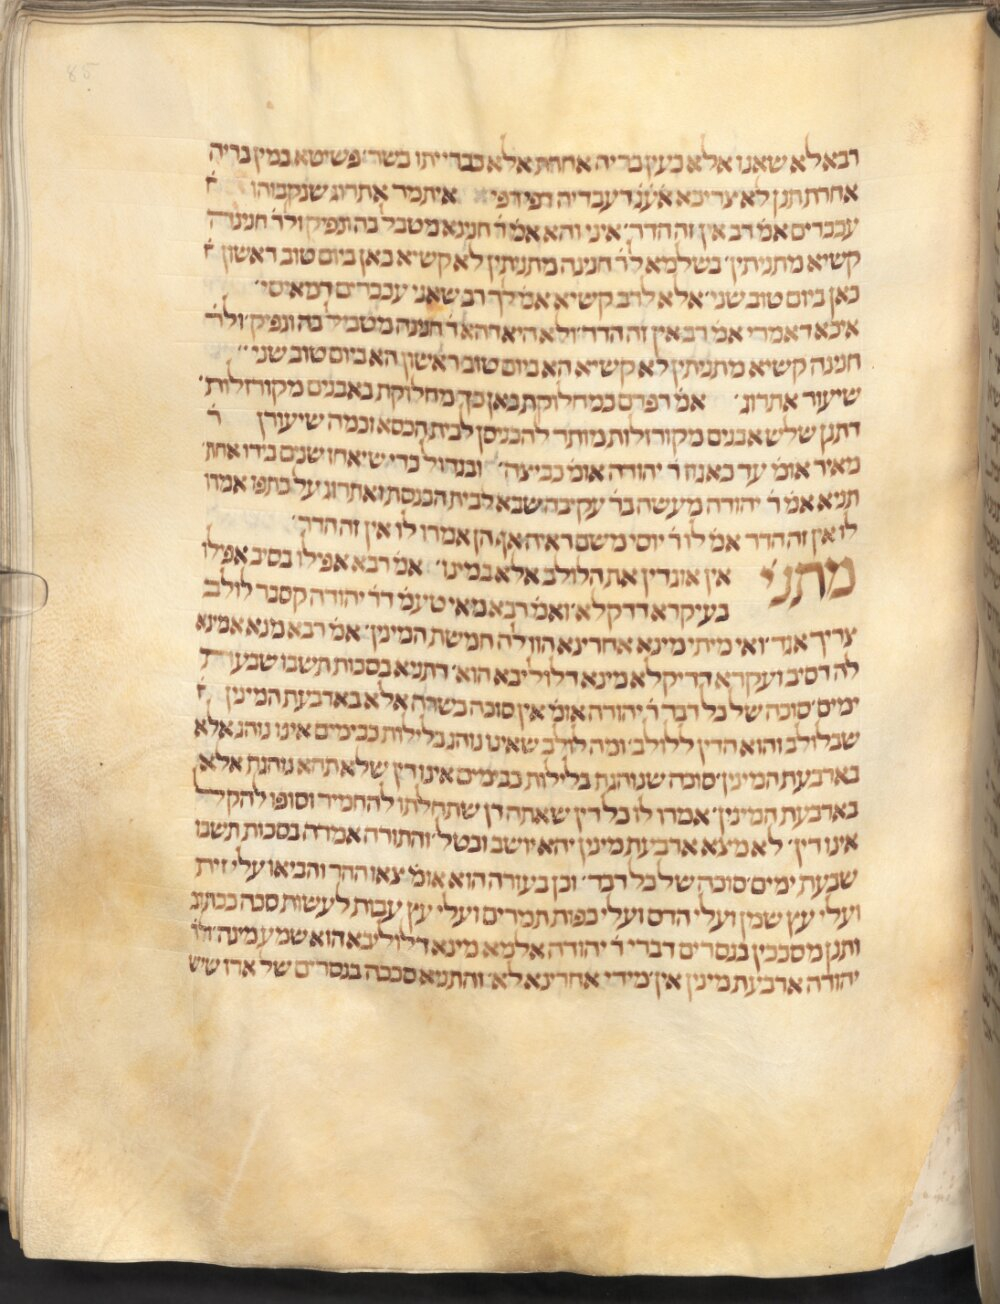 85
רבא לא שאנו אלא בעין בריה אחרת אלא כברייתו כשר׳ פשיטא כמין בריה
אחרת תנן לא צריכא דעבדיה איתמר אתרוג שנקבוהו
עכברים אמ׳ רב אין זה הדר׳ איני והא אמ׳ ר׳ חנינא מטבל בה ונפיק ולר׳ חנינה
קשיא מתניתין׳ בשלמא לר׳ חנינה מתניתין לא קשיא כאן ביום טוב ראשון
כאן ביום טוב שני׳ אלא לרב קשיא אמ׳ לך רב שאני עכברים דמאיסי׳
איכא דאמרי אמ׳ רב אין זה הדר׳ ולא היא דהא ר׳ חנינה מטביל בה ונפיק׳ ולר׳
חנינה קשיא מתניתין לא קשיא הא ביום טוב ראשון הא ביום טוב שני׳
שיעור אתרוג׳ אמ׳ רפרם כמחלוקת כאן כך מחלוקת באבנים מקורזלות׳
דתנן שלש אבנים מקורזלות מותר להכניסן לבית הכסא וכמה שיעורן ר׳
מאיר אומ׳ עד כאגוז ר׳ יהודה אומ׳ כביצה׳ ובגדול כדי שיאחז שנים בידו אחת׳
תניא אמ׳ ר׳ יהודה מעשה בר׳ עקיבה שבא לבית הכנסת ואתרוגו על כתפו אמרו
לו אין זה הדר אמ׳ לו ר׳ יוסי משם ראיה אף הן אמרו לו אין זה הדר׳
מתני׳ אין אוגדין את הלולב אלא במינו׳ אמ׳ רבא אפילו בסיב אפילו
בעיקרא דדקלא׳ ואמ׳ רבא מאי טעמ׳ דר׳ יהודה קסבר לולב
צריך אגד׳ ואי מיתי מינא אחרינא הוו לה חמשת המינין׳ אמ׳ רבא מנא אמינא
לה דסיב ועקרא דדיקלא מינא דלוליבא הוא׳ דתניא בסכות תשבו שבעת
ימים׳ סוכה של כל דבר ר׳ יהודה אומ׳ אין סוכה כשרה אלא בארבעת המינין
שבלולב והוא הדין ללולב׳ ומה לולב שאינו נוהג בלילות כבימים אינו נוהג אלא
בארבעת המינין׳ סוכה שנוהגת בלילות כבימים אינו דין שלא תהא נוהגת אלא
בארבעת המינין׳ אמרו לו כל דין שאתה דן שתחלתו להחמיר וסופו להקל
אינו דין׳ לא מצא ארבעת מינין יהא יושב ובטל׳ והתורה אמרה בסכות תשבו
שבעת ימים׳ סוכה של כל דבר׳ וכן בעזרה הוא אומ׳ צאו ההר והביאו עלי זית
ועלי עץ שמן ועלי הדס ועלי כפות תמרים ועלי עץ עבות לעשות סכה ככתוב
ותנן מסככין בנסרים דברי ר׳ יהודה אלמא מינא דלוליבא הוא שמע מינה׳ ולר׳
יהודה ארבעת מינין אין׳ מידי אחרינא לא׳ והתניא סככה בנסרים של ארז שיש